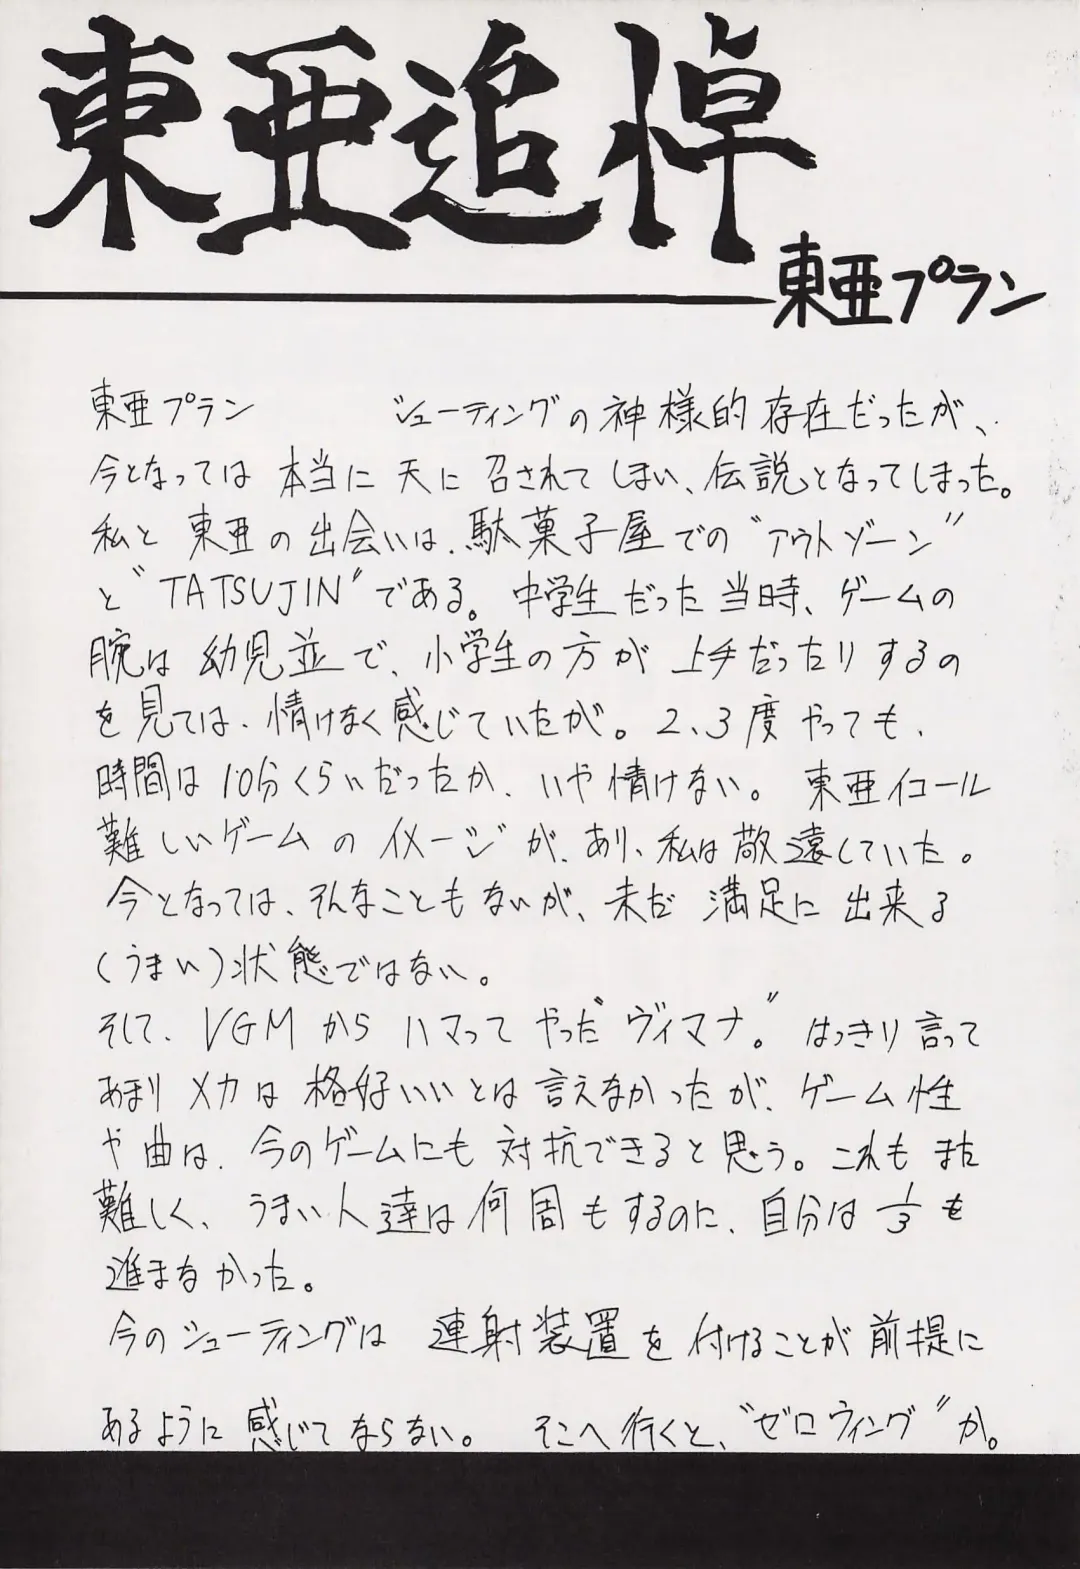 東亜追悼
東亜プラン
東亜プラン　シューティングの神様的存在だったが、
今となっては本当に天に召されてしまい、伝説となってしまった。
私と東亜の出会いは、駄菓子屋での〝アウトゾーン〟
と〝TATSUJIN〟である。中学生だった当時、ゲームの
腕は幼児並で、小学生の方が上手だったりするの
を見ては、情けなく感じていたが。2、3度やっても、
時間は10分くらいだったか、いや情けない。東亜イコール
難しいゲームのイメージが、あり、私は敬遠していた。
今となっては、そんなこともないが、未だ満足に出来る
（うまい）状態ではない。
そして、VGMからハマってやった〝ヴィマナ〟。はっきり言って
あまりメカは格好いいとは言えなかったが、ゲーム性
や曲は、今のゲームにも対抗できると思う。これもまた
難しく、うまい人達は何周もするのに、自分は1/3を
進まなかった。
今のシューティングは連射装置を付けることが前提に
あるように感じてならない。そこへ行くと、〝ゼロウィング〟か。